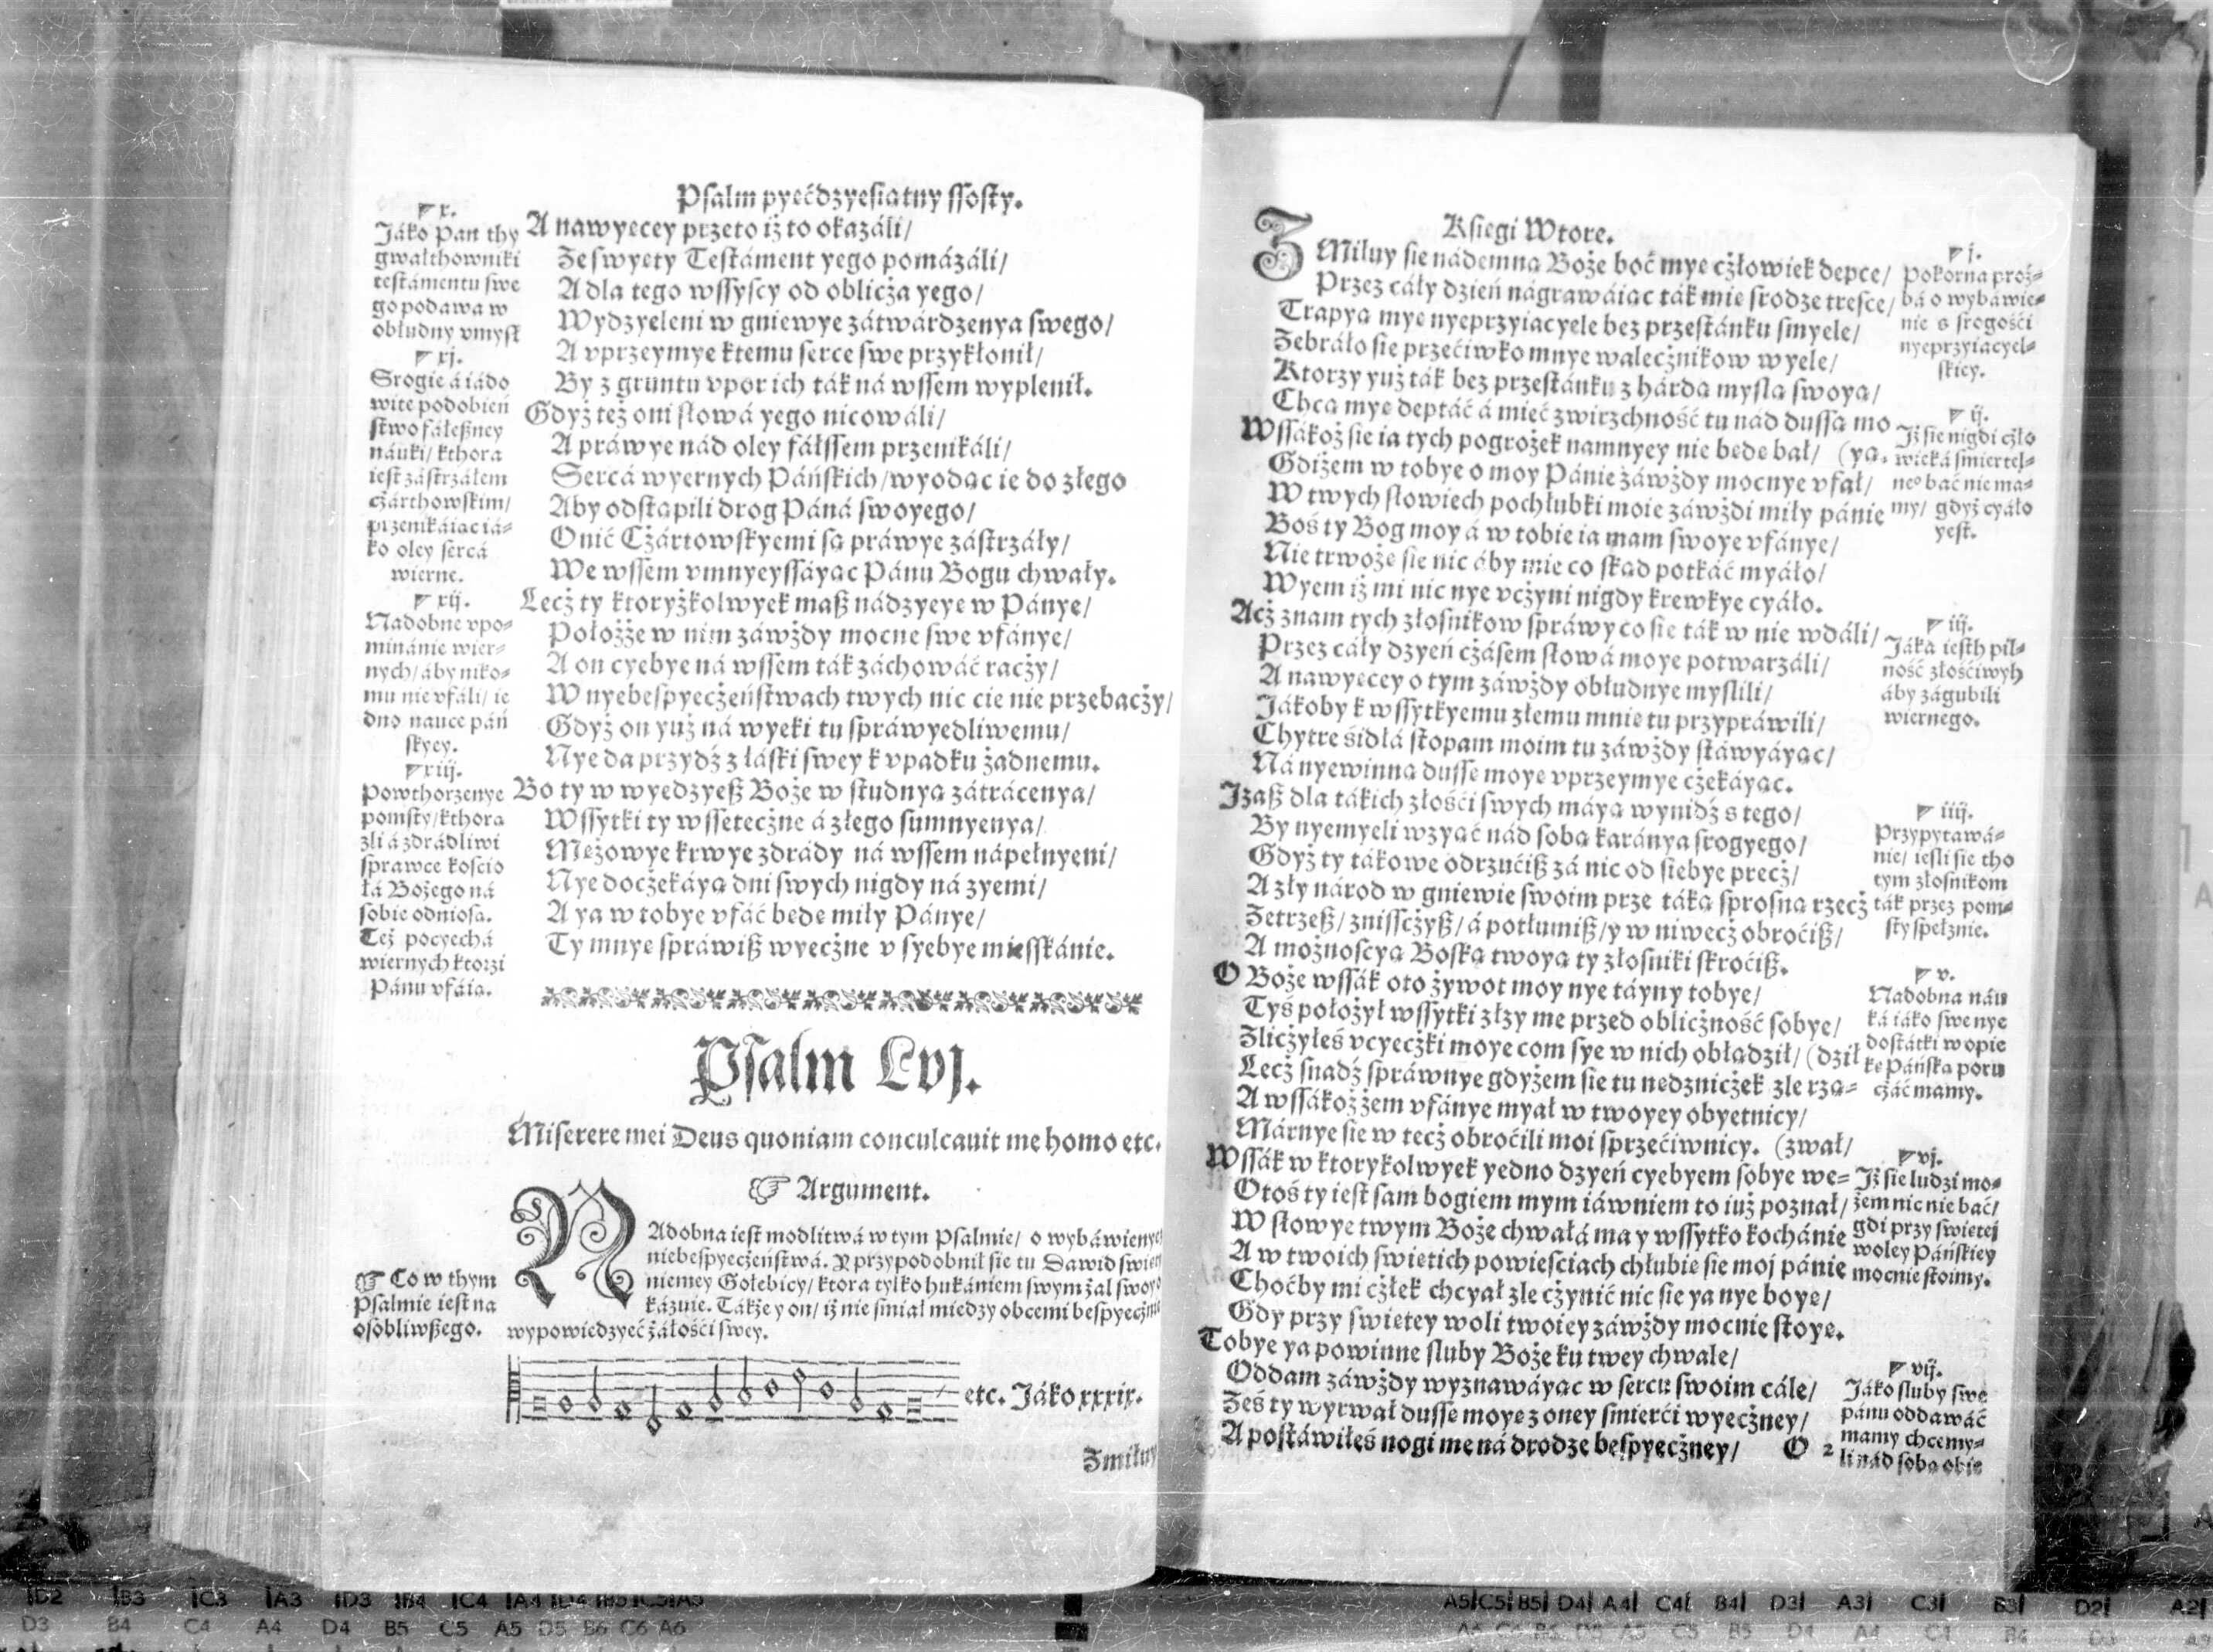 Psalm pyećdzyesiatny ssosty.
r.
Jáko Pan thy
gwałthowniki
testámentu swe
go podawa w
obłudny vmysł
rj.
Srogie á iádo
wite podobień
stwo fáłeßney
náuki/ kthora
iest zástrzáłem
cżárthowskim/
przenikáiac iá⸗
ko oley sercá
wierne.
rij.
Nadobne vpo⸗
minánie wier⸗
nych/ áby niko⸗
mu nie vfáli/ ie
dno nauce páń
skyey.
riij.
Powthorzenye
pomsty/ kthora
zli á zdrádliwi
spráwce koscio
łá Bożego ná
sobie odniosa.
Też pocyechá
wiernych ktorzi
Pánu vfáia.
A nawyecey przeto iż to okazáli/
Ze swyety Testáment yego pomázáli/
A dla tego wssyscy od oblicża yego/
Wydzyeleni w gniewye zátwárdzenya swego/
A vprzeymye ktemu serce swe przykłonił/
By z gruntu vpor ich ták ná wssem wyplenił.
Gdyż też oni słowá yego nicowáli/
A práwye nád oley fáłssem przenikáli/
Sercá wyernych Páńskich/ wyodac ie do złego
Aby odstapili drog Páná swoyego/
Onić Cżártowskyemi sa práwye zástrzáły/
We wssem vmnyeyssáyac Pánu Bogu chwały.
Lecż ty ktoryżkolwyek maß nádzyeye w Pánye/
Położże w nim záwżdy mocne swe vfánye/
A on cyebye ná wssem ták záchowáć racży/
W nyebespyecżeństwach twych nic cie nie przebacży/
Gdyż on yuż ná wyeki tu spráwyedliwemu/
Nye da przydź z łáski swey k vpadku żadnemu.
Bo ty w wyedzyeß Boże w studnya zátrácenya/
Wssytki ty wssetecżne á złego sumnyenya/
Meżowye krwye zdrády ná wssem nápełnyeni/
Nye docżekáya dni swych nigdy ná zyemi/
A ya w tobye vfáć bede miły Pánye/
Ty mnye spráwiß wyecżne v syebye miesskánie.
Psalm Lvj.
Miserere mei Deus quoniam conculcauit me homo etc.
☞ Argument.
NAdobna iest modlitwá w tym Psalmie/ o wybáwienye
niebespyecżeństwá. Y przypodobnił sie tu Dawid swiet
niemey Gołebicy/ ktora tylko hukániem swym żal swoy
kázuie. Tákże y on/ iż nie smiał miedzy obcemi bespyecżnie
wypowiedzyeć żáłości swey.
☞ Co w thym
Psalmie iest na
osobliwßego.
etc. Jáko xxxix.
Zmiłuy
Ksiegi Wtore.
ZMiluy sie nádemna Boże boć mye cżłowiek depce/
Przez cáły dzień nágrawáiac ták mie srodze tresce/
Trapya mye nyeprzyiacyele bez przestánku smyele/
Zebráło sie przećiwko mnye walecżnikow wyele/
Ktorzy yuż ták bez przestánku z hárda mysla swoya/
Chca mye deptáć á mieć zwirzchność tu nád dussa mo
Wssákoż sie ia tych pogrożek namnyey nie bede bał/ (ya.
Gdiżem w tobye o moy Pánie záwżdy mocnye vfał/
W twych słowiech pochłubki moie záwżdi miły pánie
Boś ty Bog moy á w tobie ia mam swoye vfánye/
Nie trwoże sie nic áby mie co skad potkáć myáło/
Wyem iż mi nic nye vcżyni nigdy krewkye cyáło.
Acż znam tych złosnikow spráwy co sie ták w nie wdáli/
Przez cáły dzyeń cżásem słowá moye potwarzáli/
A nawyecey o tym záwżdy obłudnye myslili/
Jákoby k wssytkyemu złemu mnie tu przypráwili/
Chytre śidłá stopam moim tu záwżdy stáwyáyac/
Ná nyewinna dusse moye vprzeymye cżekáyac.
Jzaß dla tákich złośći swych máya wynidź s tego/
By nyemyeli wzyać nád soba karánya srogyego/
Gdyż ty tákowe odrzućiß zá nic od siebye precż/
A zły národ w gniewie swoim prze táka sprosna rzecż
Zetrzeß/ znisscżyß/ á potłumiß/ y w niwecż obroćiß/
A możnoscya Boska twoya ty złosniki skroćiß.
O Boże wssák oto żywot moy nye táyny tobye/
Tyś położył wssytki złzy me przed oblicżność sobye/
Zlicżyłeś vcyecżki moye com sye w nich obładził/ (dził
Lecż snadź spráwnye gdyżem sie tu nedznicżek zle rza⸗
A wssákożżem vfánye myał w twoyey obyetnicy/
Márnye sie w tecż obroćili moi sprzećiwnicy. (zwał/
Wssák w ktorykolwyek yedno dzyeń cyebyem sobye we⸗
Otoś ty iest sam bogiem mym iáwniem to iuż poznał/
W słowye twym Boże chwałá ma y wssytko kochánie
A w twoich swietich powiesciach chłubie sie moj pánie
Choćby mi cżłek chcyał zle cżynić nic sie ya nye boye/
Gdy przy swietey woli twoiey záwżdy mocnie stoye.
Tobye ya powinne sluby Boże ku twey chwale/
Oddam záwżdy wyznawáyac w sercu swoim cále/
Żeś ty wyrwał dusse moye z oney smierći wyecżney/
A postáwiłeś nogi me ná drodze bespyecżney/
O 2
j.
Pokorna proż⸗
bá o wybáwie⸗
nie s srogośći
nyeprzyiacyel⸗
skiey.
ij.
Jż sie nigdi cżło
wieká smiertel⸗
neº bać nie ma⸗
my/ gdyż cyáło
yest.
iij.
Jáka iesth pil⸗
ność złośćiwyh
áby zágubili
wiernego.
iiij.
Przypytawá⸗
nie/ iesli sie tho
tym złosnikom
ták przez pom⸗
sty spełznie.
v.
Nadobna náu
ká iáko swe nye
dostátki w opie
ke Páńska poru
cżáć mamy.
vj.
Jż sie ludzi mo⸗
żem nic nie bać/
gdi przy swietej
woley Páńskiey
mocnie stoimy.
vij.
Jáko sluby swe
pánu oddawáć
mamy chcemy⸗
li nád soba obie